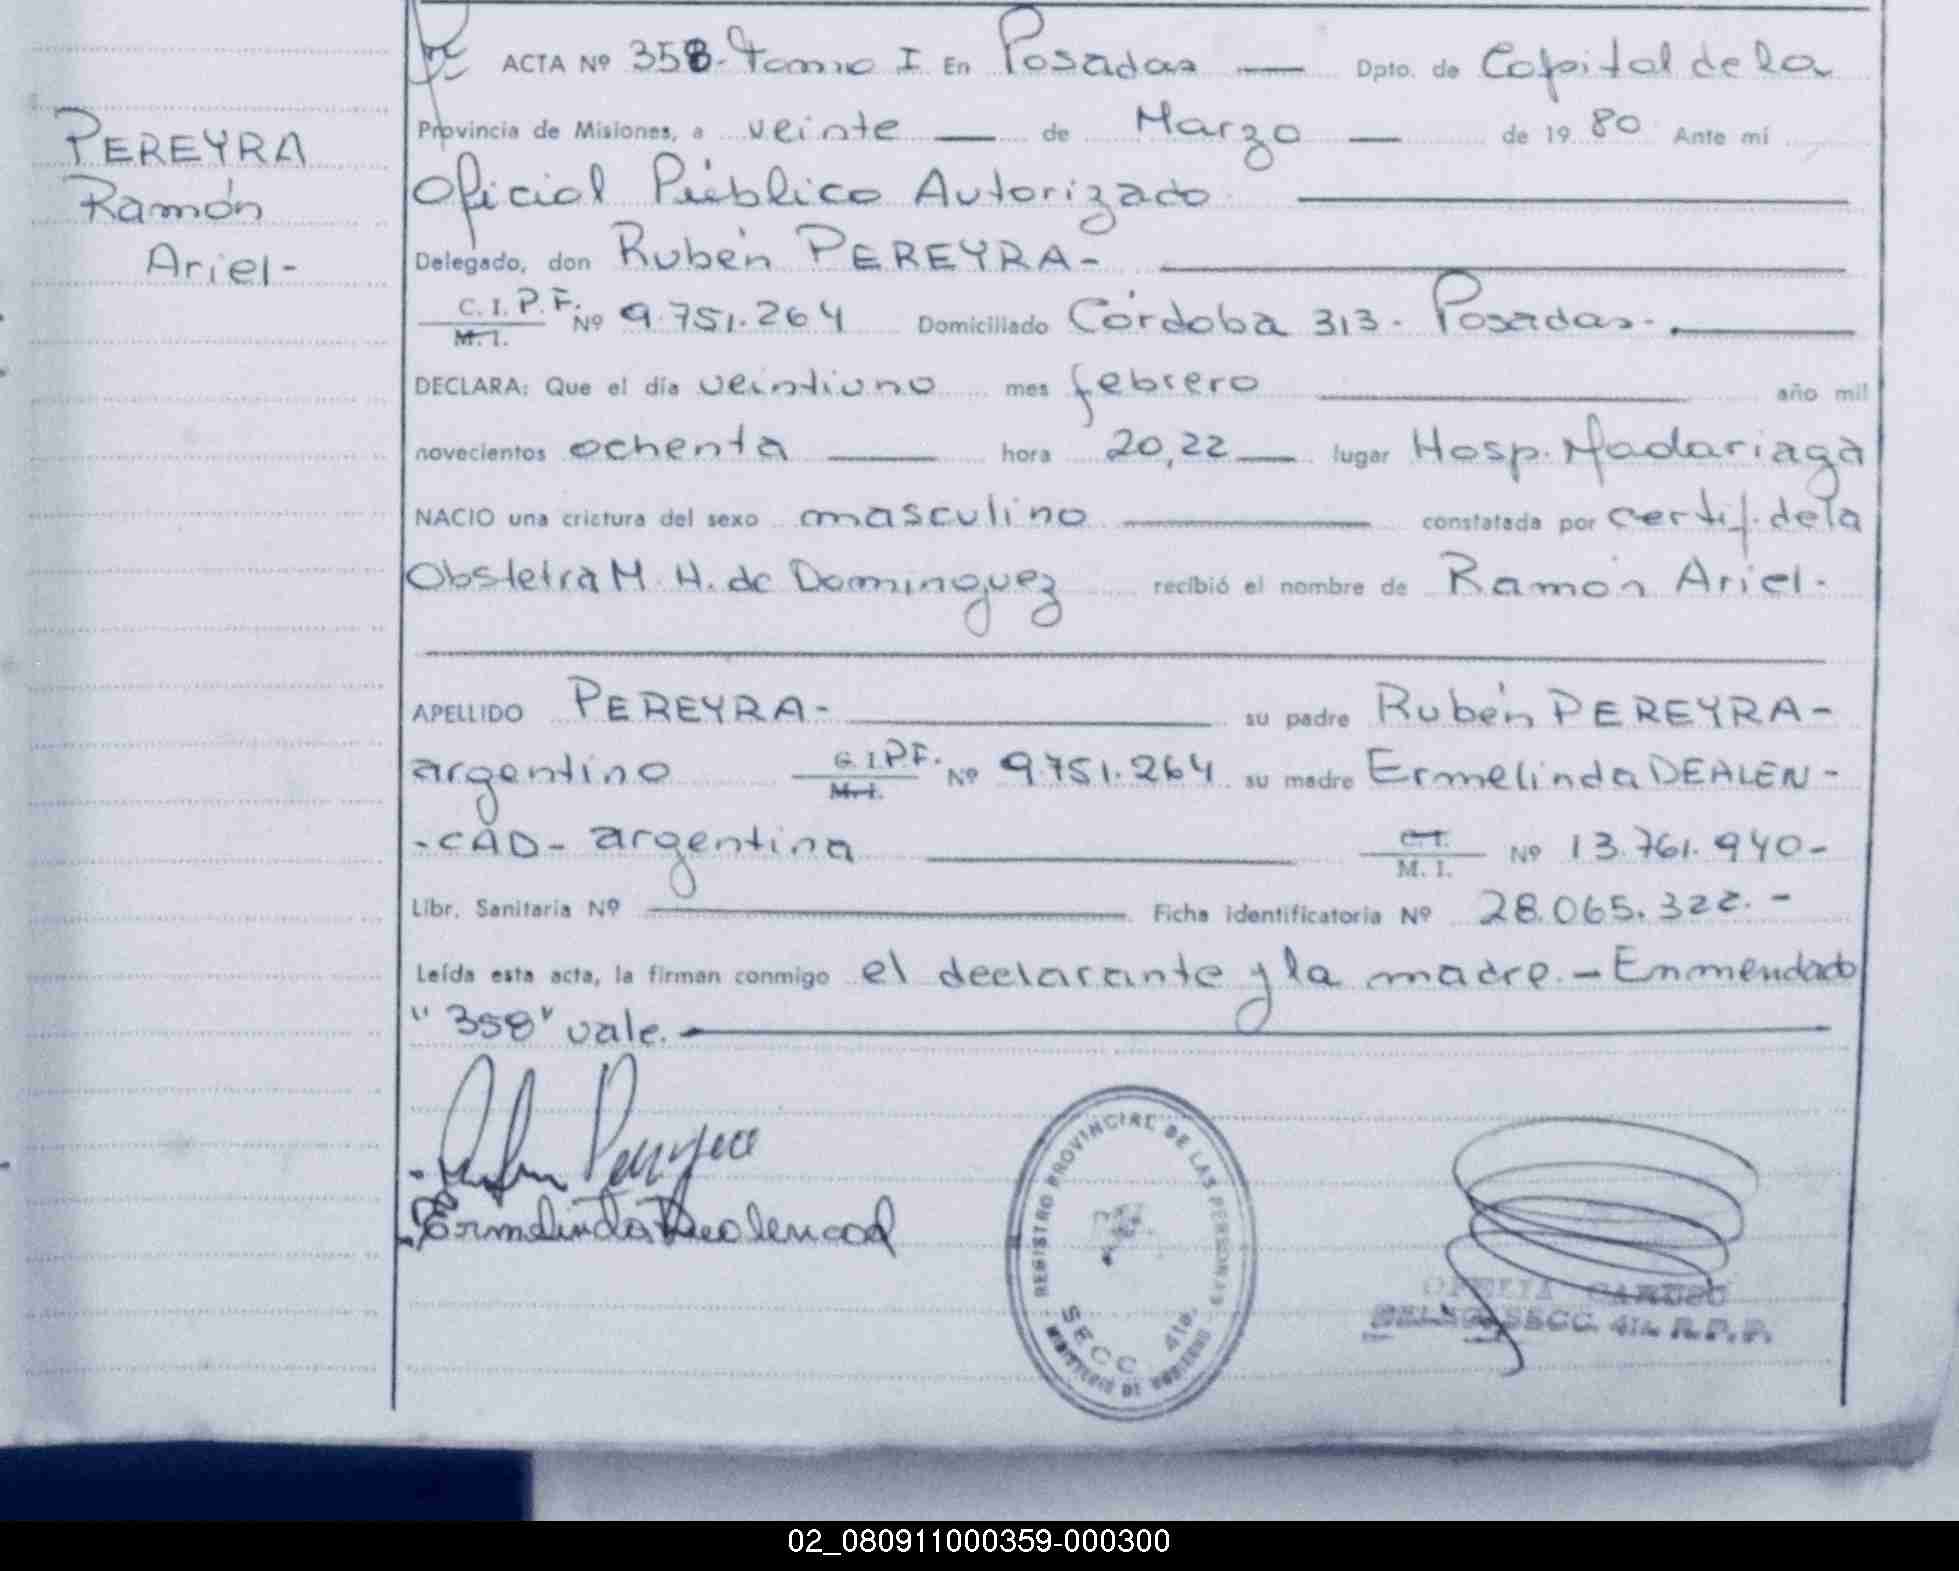 PEREYRA
Ramón
Ariel-
ACTA Nº 358- Tomo I En Posadas — Dpto. de Capital de la
Provincia de Misiones, a veinte — de Marzo — de 1980 Ante mí
Oficial Público Autorizado
Delegado, don Rubén PEREYRA-
C.I.P.F. Nº 9.751.264 Domiciliado Córdoba 313- Posadas-
M. I.
DECLARA: Que el día veintiuno mes febrero año mil
novecientos ochenta — hora 20,22 — lugar Hosp. Madariaga
NACIO una crictura del sexo masculino constatada por certif. de la
Obstetra M. H. de Dominguez recibió el nombre de Ramón Ariel-
APELLIDO PEREYRA- su padre Rubén PEREYRA-
argentino C.I.P.F. Nº 9.751.264 su madre Ermelinda DEALEN-
M. I.
-CAD- argentina C.I. Nº 13.761.940-
M. I.
Libr. Sanitaria Nº Ficha identificatoria Nº 28.065.322.-
Leída esta acta, la firman conmigo el declarante y la madre.- Enmendado
"358" vale.-
Ruben Pereyra
Ermelinda Dealencad
REGISTRO PROVINCIAL DE LAS PERSONAS
SECC. 4ta.
MINISTERIO DE GOBIERNO
OFELIA CARUSO
DELEG. SECC. 4ta. R.P.P.
02_080911000359-000300